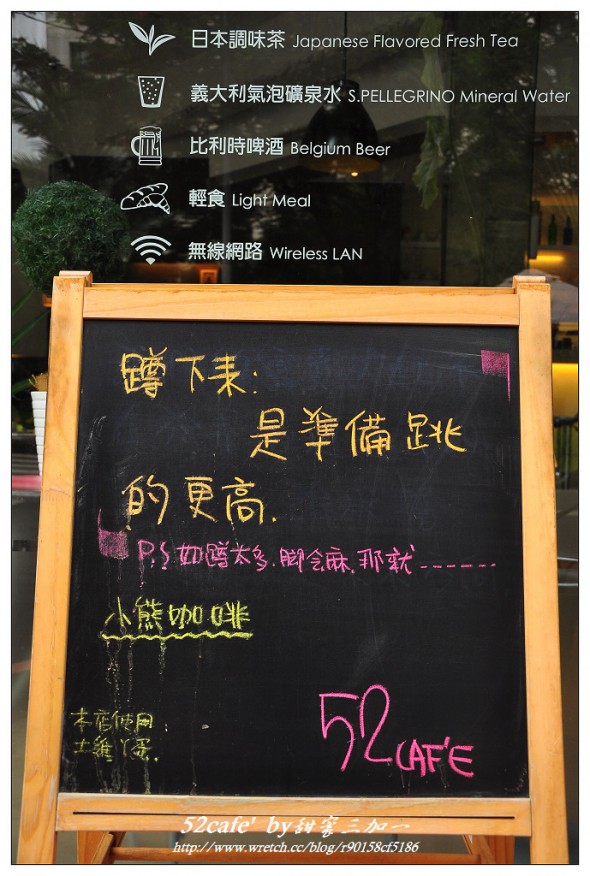 日本調味茶 Japanese Flavored Fresh Tea
義大利氣泡礦泉水 S.PELLEGRINO Mineral Water
比利時啤酒 Belgium Beer
輕食 Light Meal
無線網路 Wireless LAN
蹲下來:
是準備跳
的更高.
P.S 如蹲太多.腳會麻.那就-------
小熊咖啡
本店使用:
土雞ㄚ蛋.
52CAF'E
52cafe' by甜蜜三加一
http://www.wretch.cc/blog/r90158cf5186